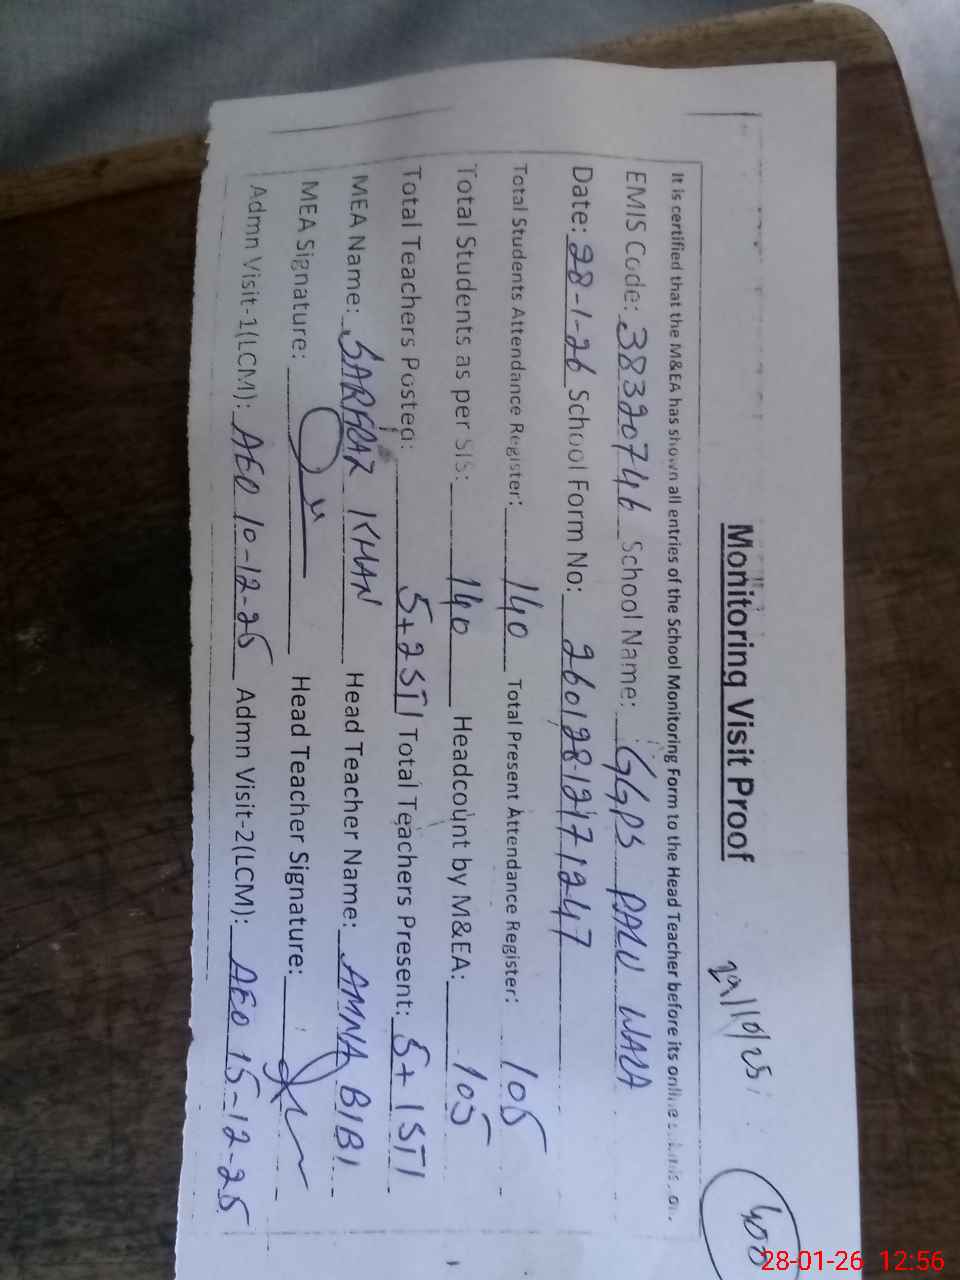 Monitoring Visit Proof 29/10/25 400
It is certified that the M&EA has shown all entries of the School Monitoring Form to the Head Teacher before its online
EMIS Code: 38320746 School Name: GGPS
Date: 28-1-26 School Form No: 260128-1217-1247
Total Students Attendance Register: 140 Total Present Attendance Register: 105
Total Students as per SIS: 140 Headcount by M&EA: 105
Total Teachers Posted: 5+2STI Total Teachers Present: 5+1STI
MEA Name: KHAN Head Teacher Name: AMNA BIBI
MEA Signature: Head Teacher Signature:
Admn Visit-1(LCM): AEO 10-12-25 Admn Visit-2(LCM): AEO 15-12-25
28-01-26 12:56